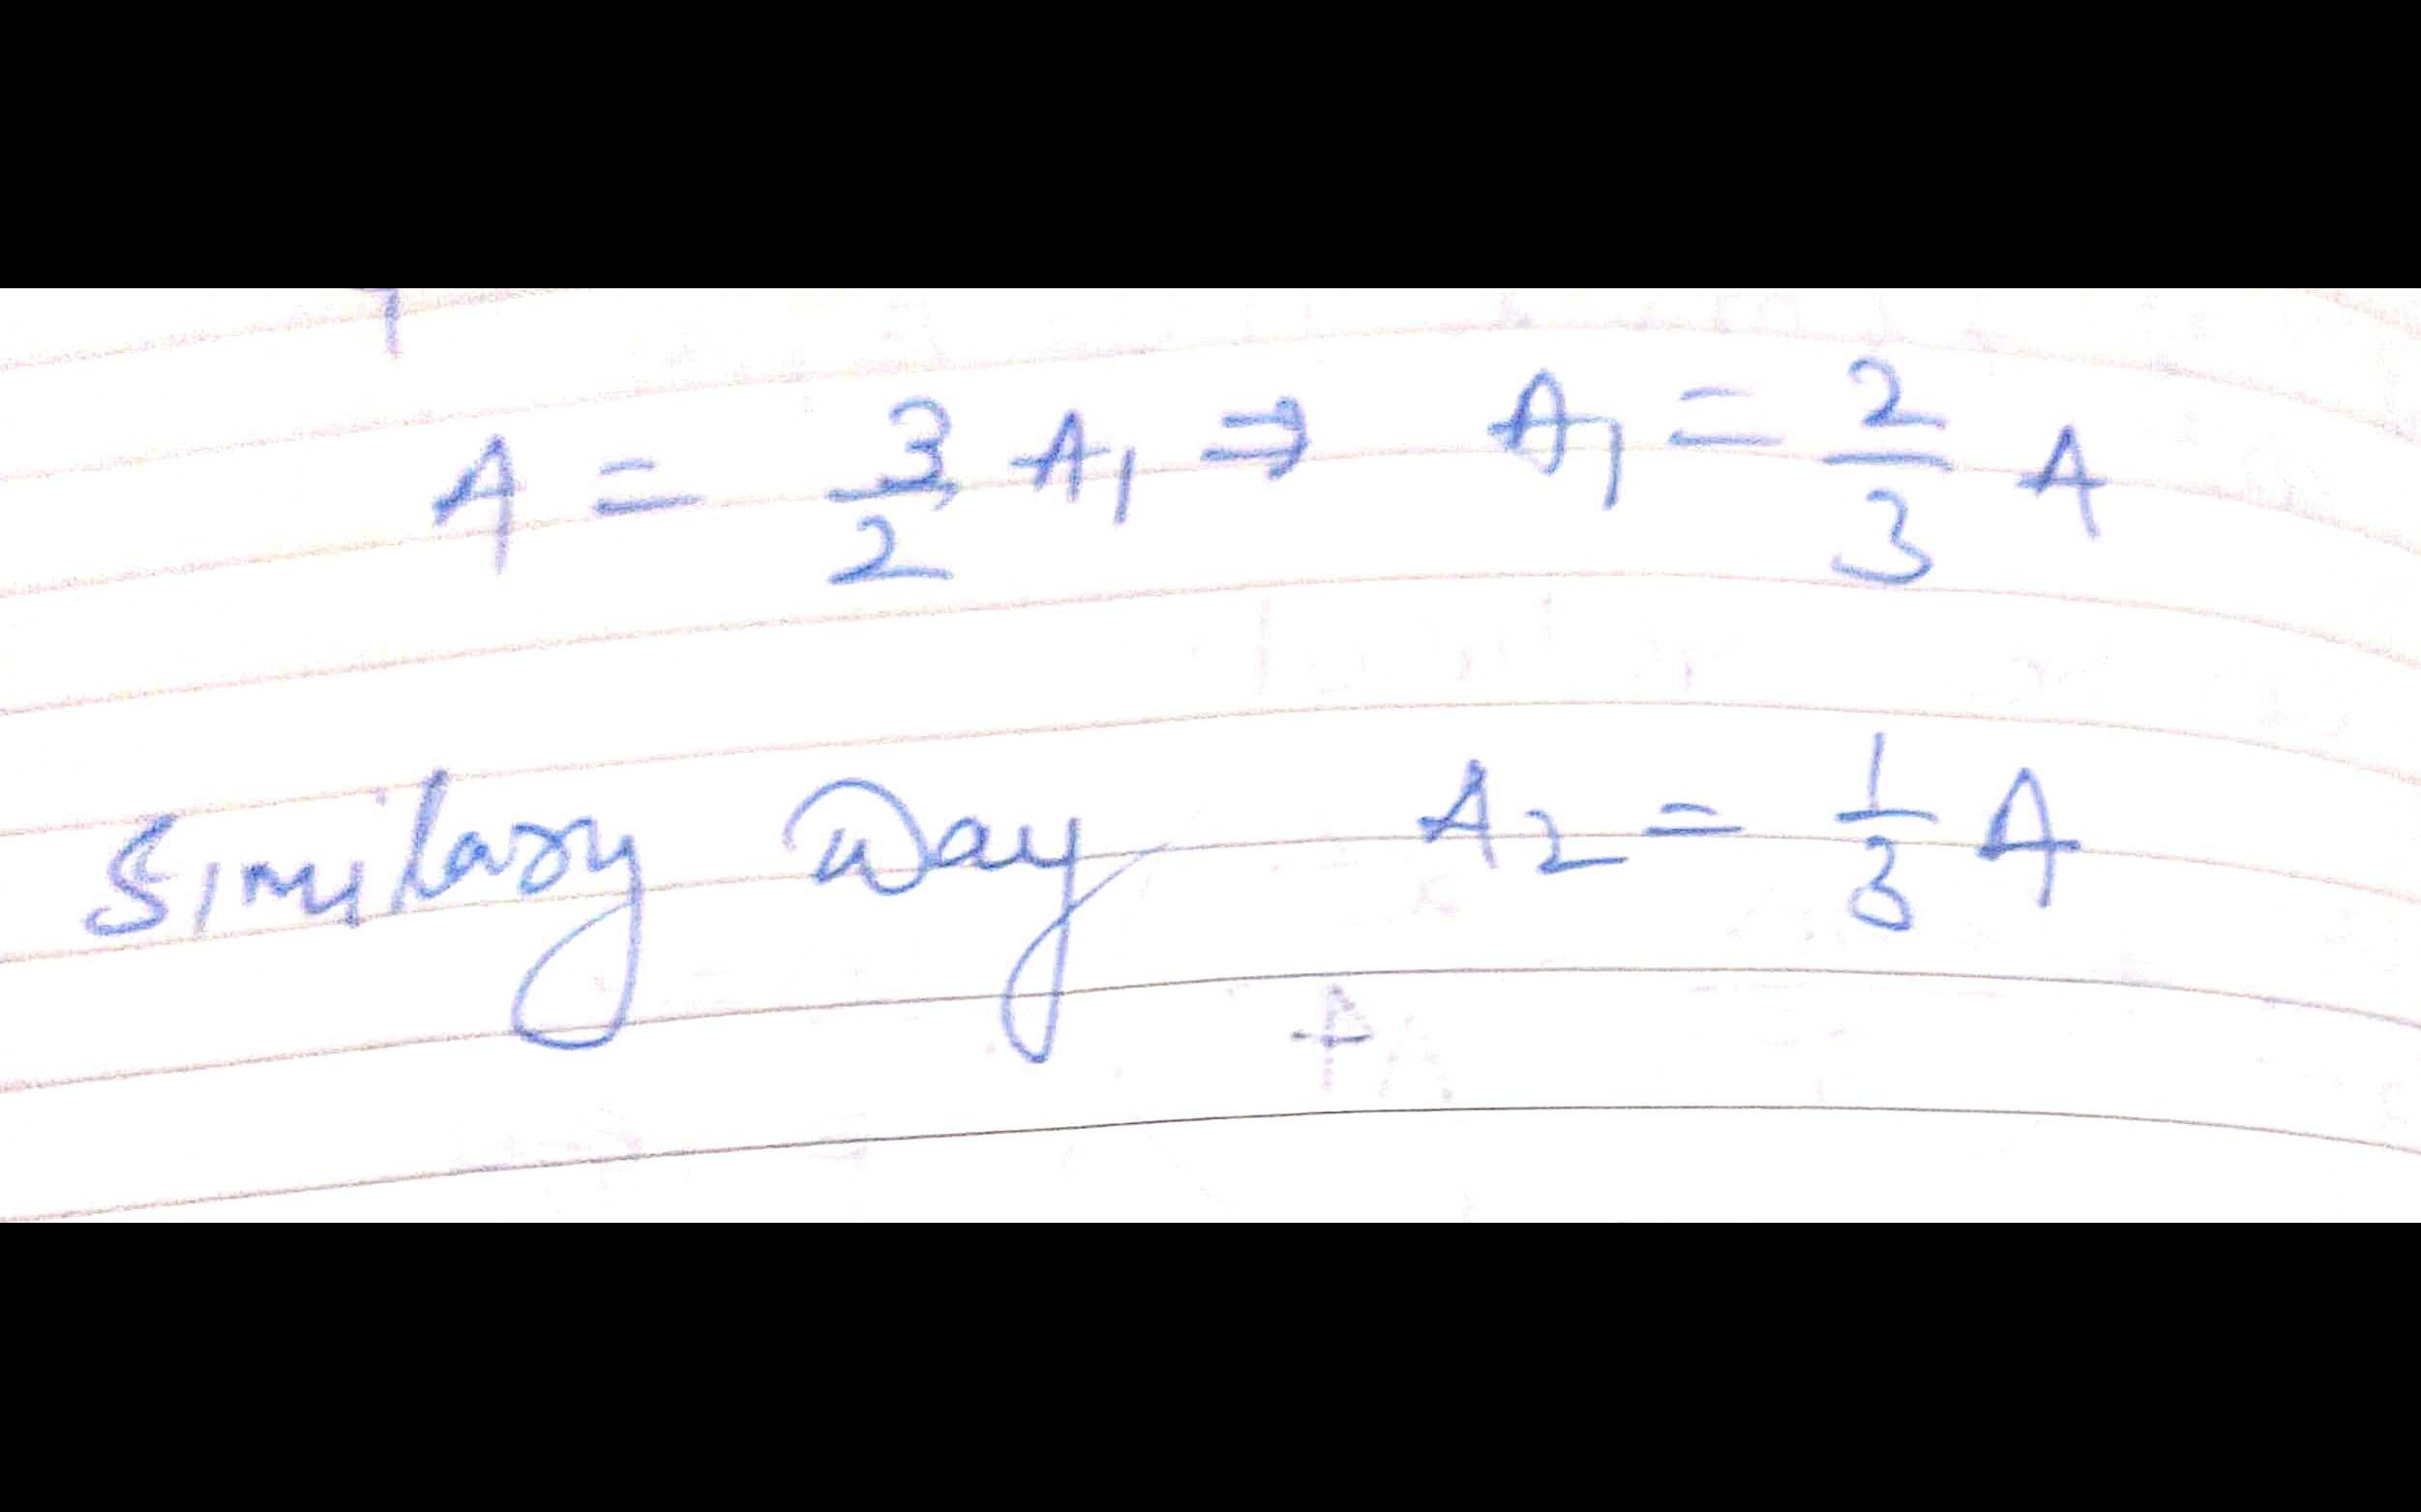 A = 3/2 A₁ ⇒ A₁ = 2/3 A
Similary way A₂ = 1/3 A